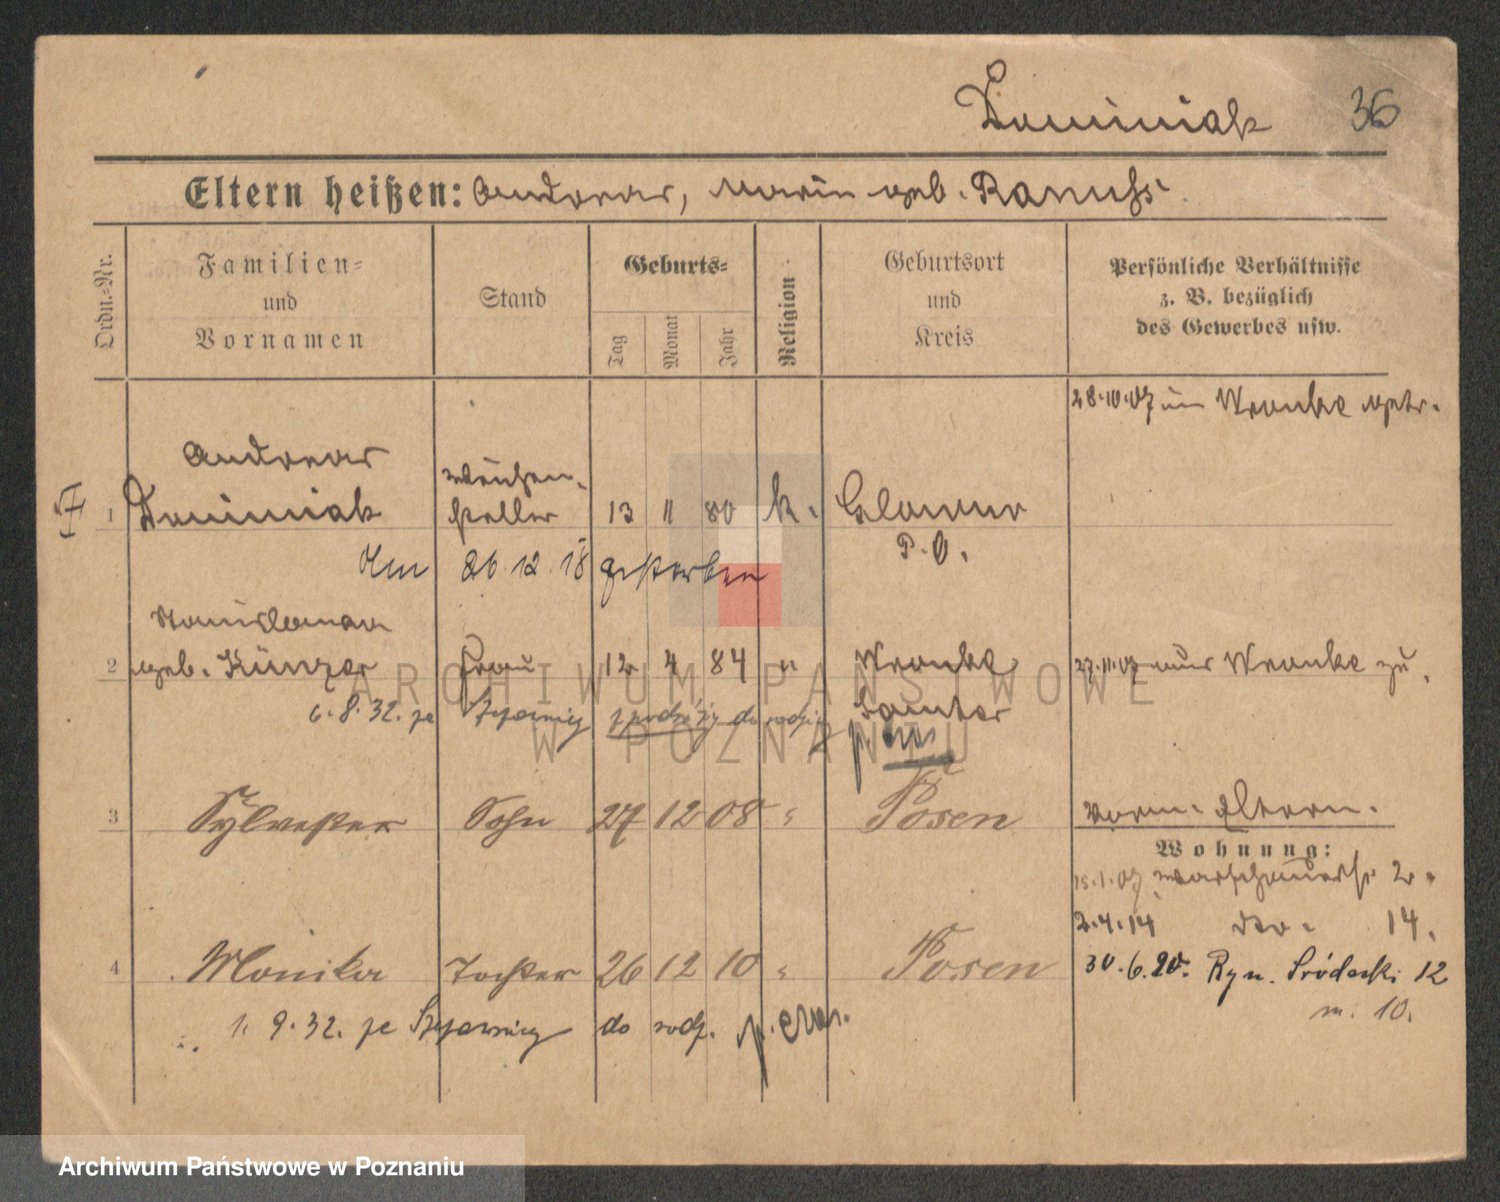 Dominiak 36
Eltern heißen: Andreas, Marie geb. Ranuss
Ordn.-Nr.
Familien-
und
Vornamen
Stand
Geburts-
Tag
Monat
Jahr
Religion
Geburtsort
und
Kreis
Persönliche Verhältnisse
z. B. bezüglich
des Gewerbes usw.
28.10.07 in Wronke getr.
Andreas
Weichen-
1 Dominiak steller 13 11 80 k.
P. O.
Am 26.12.18 gestorben
Stanislawa
2 geb. Künzer Frau 12 4 84 " Wronke 27.11.07 aus Wronke zu.
6.8.32. ze Samter
3 Sylvester Sohn 27 12 08 " Posen
Eltern.
Wohnung:
15.1.07 Warschauerstr 2.
2.4.14 dto. 14.
4 Monika Tochter 26 12 10 " Posen
30.6.20. Ryn. Śródecki 12
m. 10.
1.9.32. ze do rodz. p. ewn.
ARCHIWUM PAŃSTWOWE
W POZNANIU
Archiwum Państwowe w Poznaniu